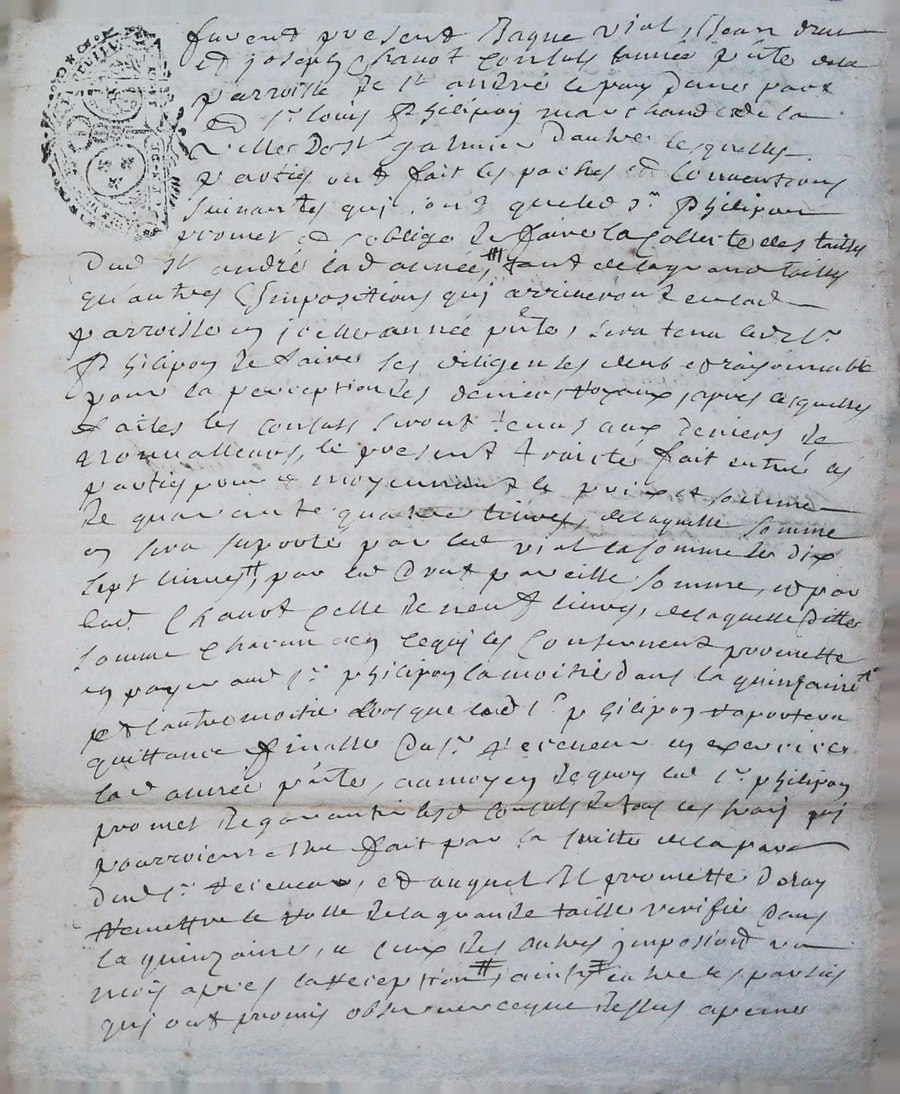 furent present Jaque vial, Jean drut
et joseph Chanot Consuls année p̃nte de la
parroisse de St andré le puy dune part
Et Sr louis Philipon marchand de la
ville De st galmier Dautre lesquelles
parties ont fait les paches et Conventions
suivantes qui sont que led Sr Philipon
promet et soblige de faire la Collecte des tailles
Dud St andré lad année, tant de la grand taille
qu'autres Impositions qui arriveront en lad
parroisse en jcelle année p̃nte, sera tenu led Sr
Philipon de faire les diligences deub et raisonnable
pour la perception des deniers Royaux, apres lesquelles
faites les consuls seront tenus aux deniers de
nonvalleurs, le present traicté fait entre les
parties pour et moyennant le prix et somme
de quarante quatre livres, de laquelle somme
en sera suporté par led vial la somme de dix
sept livres, par led Drut pareille somme, et par
led. Chanot Celle de neuf livres, de laquelle ditte
somme chacun en ce qui les Concernent promette
en payer aud Sr philipon la moitié dans la quinzaine
et lautre moitié lorsque led Sr philipon raportera
quittance finalle Du Sr Receveur en exercice
lad année p̃nte, au moyen de quoy led Sr philipon
promet de garantir lesd consuls de tous les frais qui
pourroient être fait par la suitte de la part
Dud Sr Receveur, et auquel Il promette
Remettre le Rolle de la grande taille verifié Dans
la quinzaine, et ceux des autres jmpositions un
mois apres la Reception, ainsy entre les parties
qui ont promis observer ce que dessus a peine